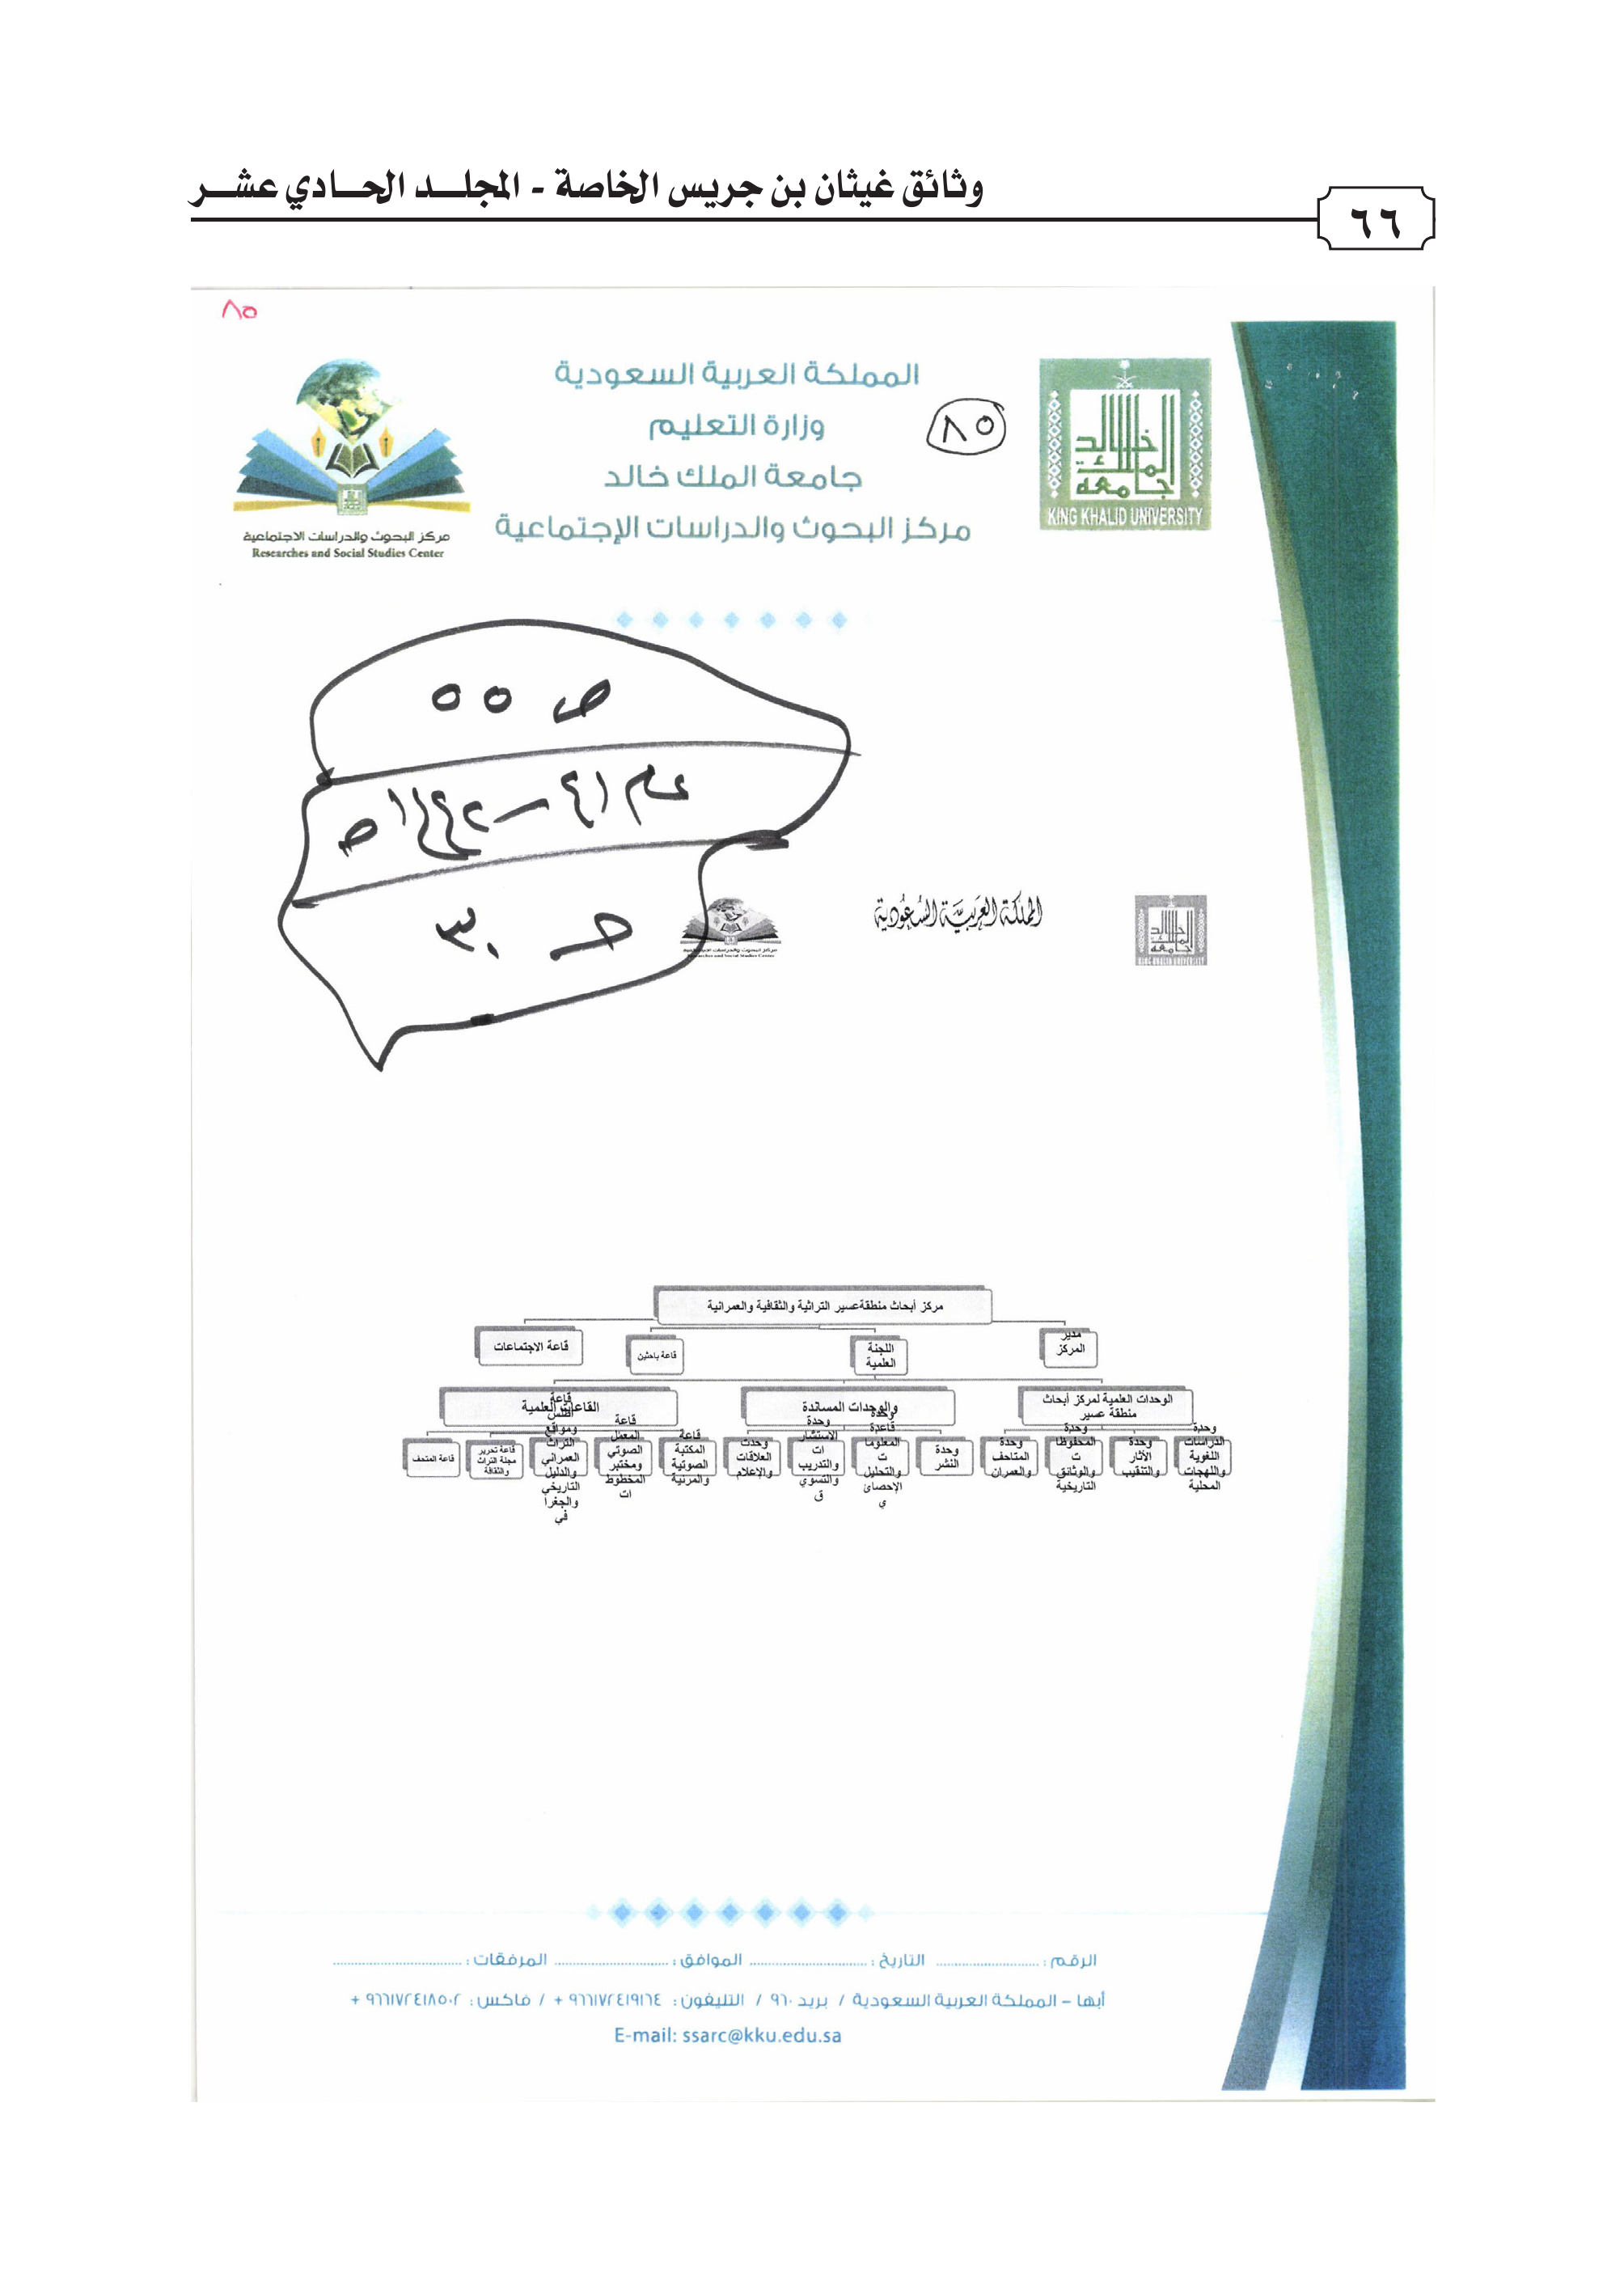 وثائق غيثان بن جريس الخاصة - المجلد الحادي عشر
٦٦
٨٥
المملكة العربية السعودية
وزارة التعليم
٨٥
جامعة الملك خالد
مركز البحوث والدراسات الإجتماعية
جامعة الملك خالد
KING KHALID UNIVERSITY
مركز البحوث والدراسات الاجتماعية
Researches and Social Studies Center
ص ٥٥
عام ٤١ – ١٤٤٢هـ
حـ ٣٠
المملكة العربية السعودية
جامعة الملك خالد
KING KHALID UNIVERSITY
مركز البحوث والدراسات الاجتماعية
Researches and Social Studies Center
مركز أبحاث منطقة عسير التراثية والثقافية والعمرانية
مدير المركز
اللجنة العلمية
قاعة باحثين
قاعة الاجتماعات
الوحدات العلمية لمركز أبحاث منطقة عسير
والوحدات المساندة
القاعات العلمية
وحدة الدراسات اللغوية واللهجات المحلية
وحدة الآثار والتنقيب
وحدة المحفوظات والوثائق التاريخية
وحدة المتاحف والعمران
وحدة النشر
وحدة قاعدة المعلومات والتحليل الإحصائي
وحدة الاستشارات والتدريب والتسويق
وحدت العلاقات والإعلام
قاعة المكتبة الصوتية والمرئية
قاعة المعمل الصوتي ومختبر المخطوطات
قاعة أطلس ومواقع التراث العمراني والدليل التاريخي والجغرافي
قاعة تحرير مجلة التراث والثقافة
قاعة المتحف
الرقم : التاريخ : الموافق : المرفقات :
أبها – المملكة العربية السعودية / بريد ٩٦٠ / التليفون : ٩٦٦١٧٢٤١٩١٦٤ + / فاكس : ٩٦٦١٧٢٤١٨٥٠٢ +
E-mail: ssarc@kku.edu.sa